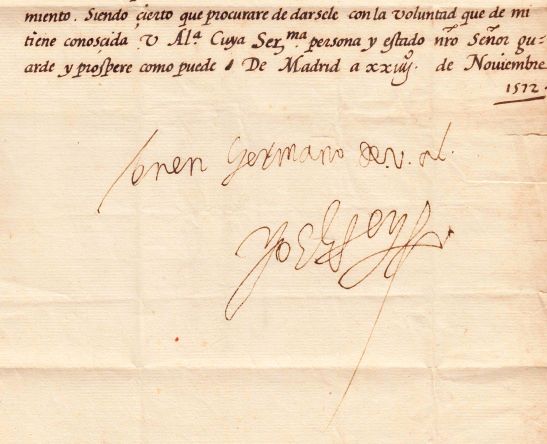 miento. Siendo cierto que procurare de darsele con la voluntad que de mi
tiene conoscida V Al.ª Cuya Ser.ma persona y estado nro Señor gu-
arde y prospere como puede / De Madrid a xxiiij. de Noviembre
1572.
buen germano de v. al.
Yo El Rey